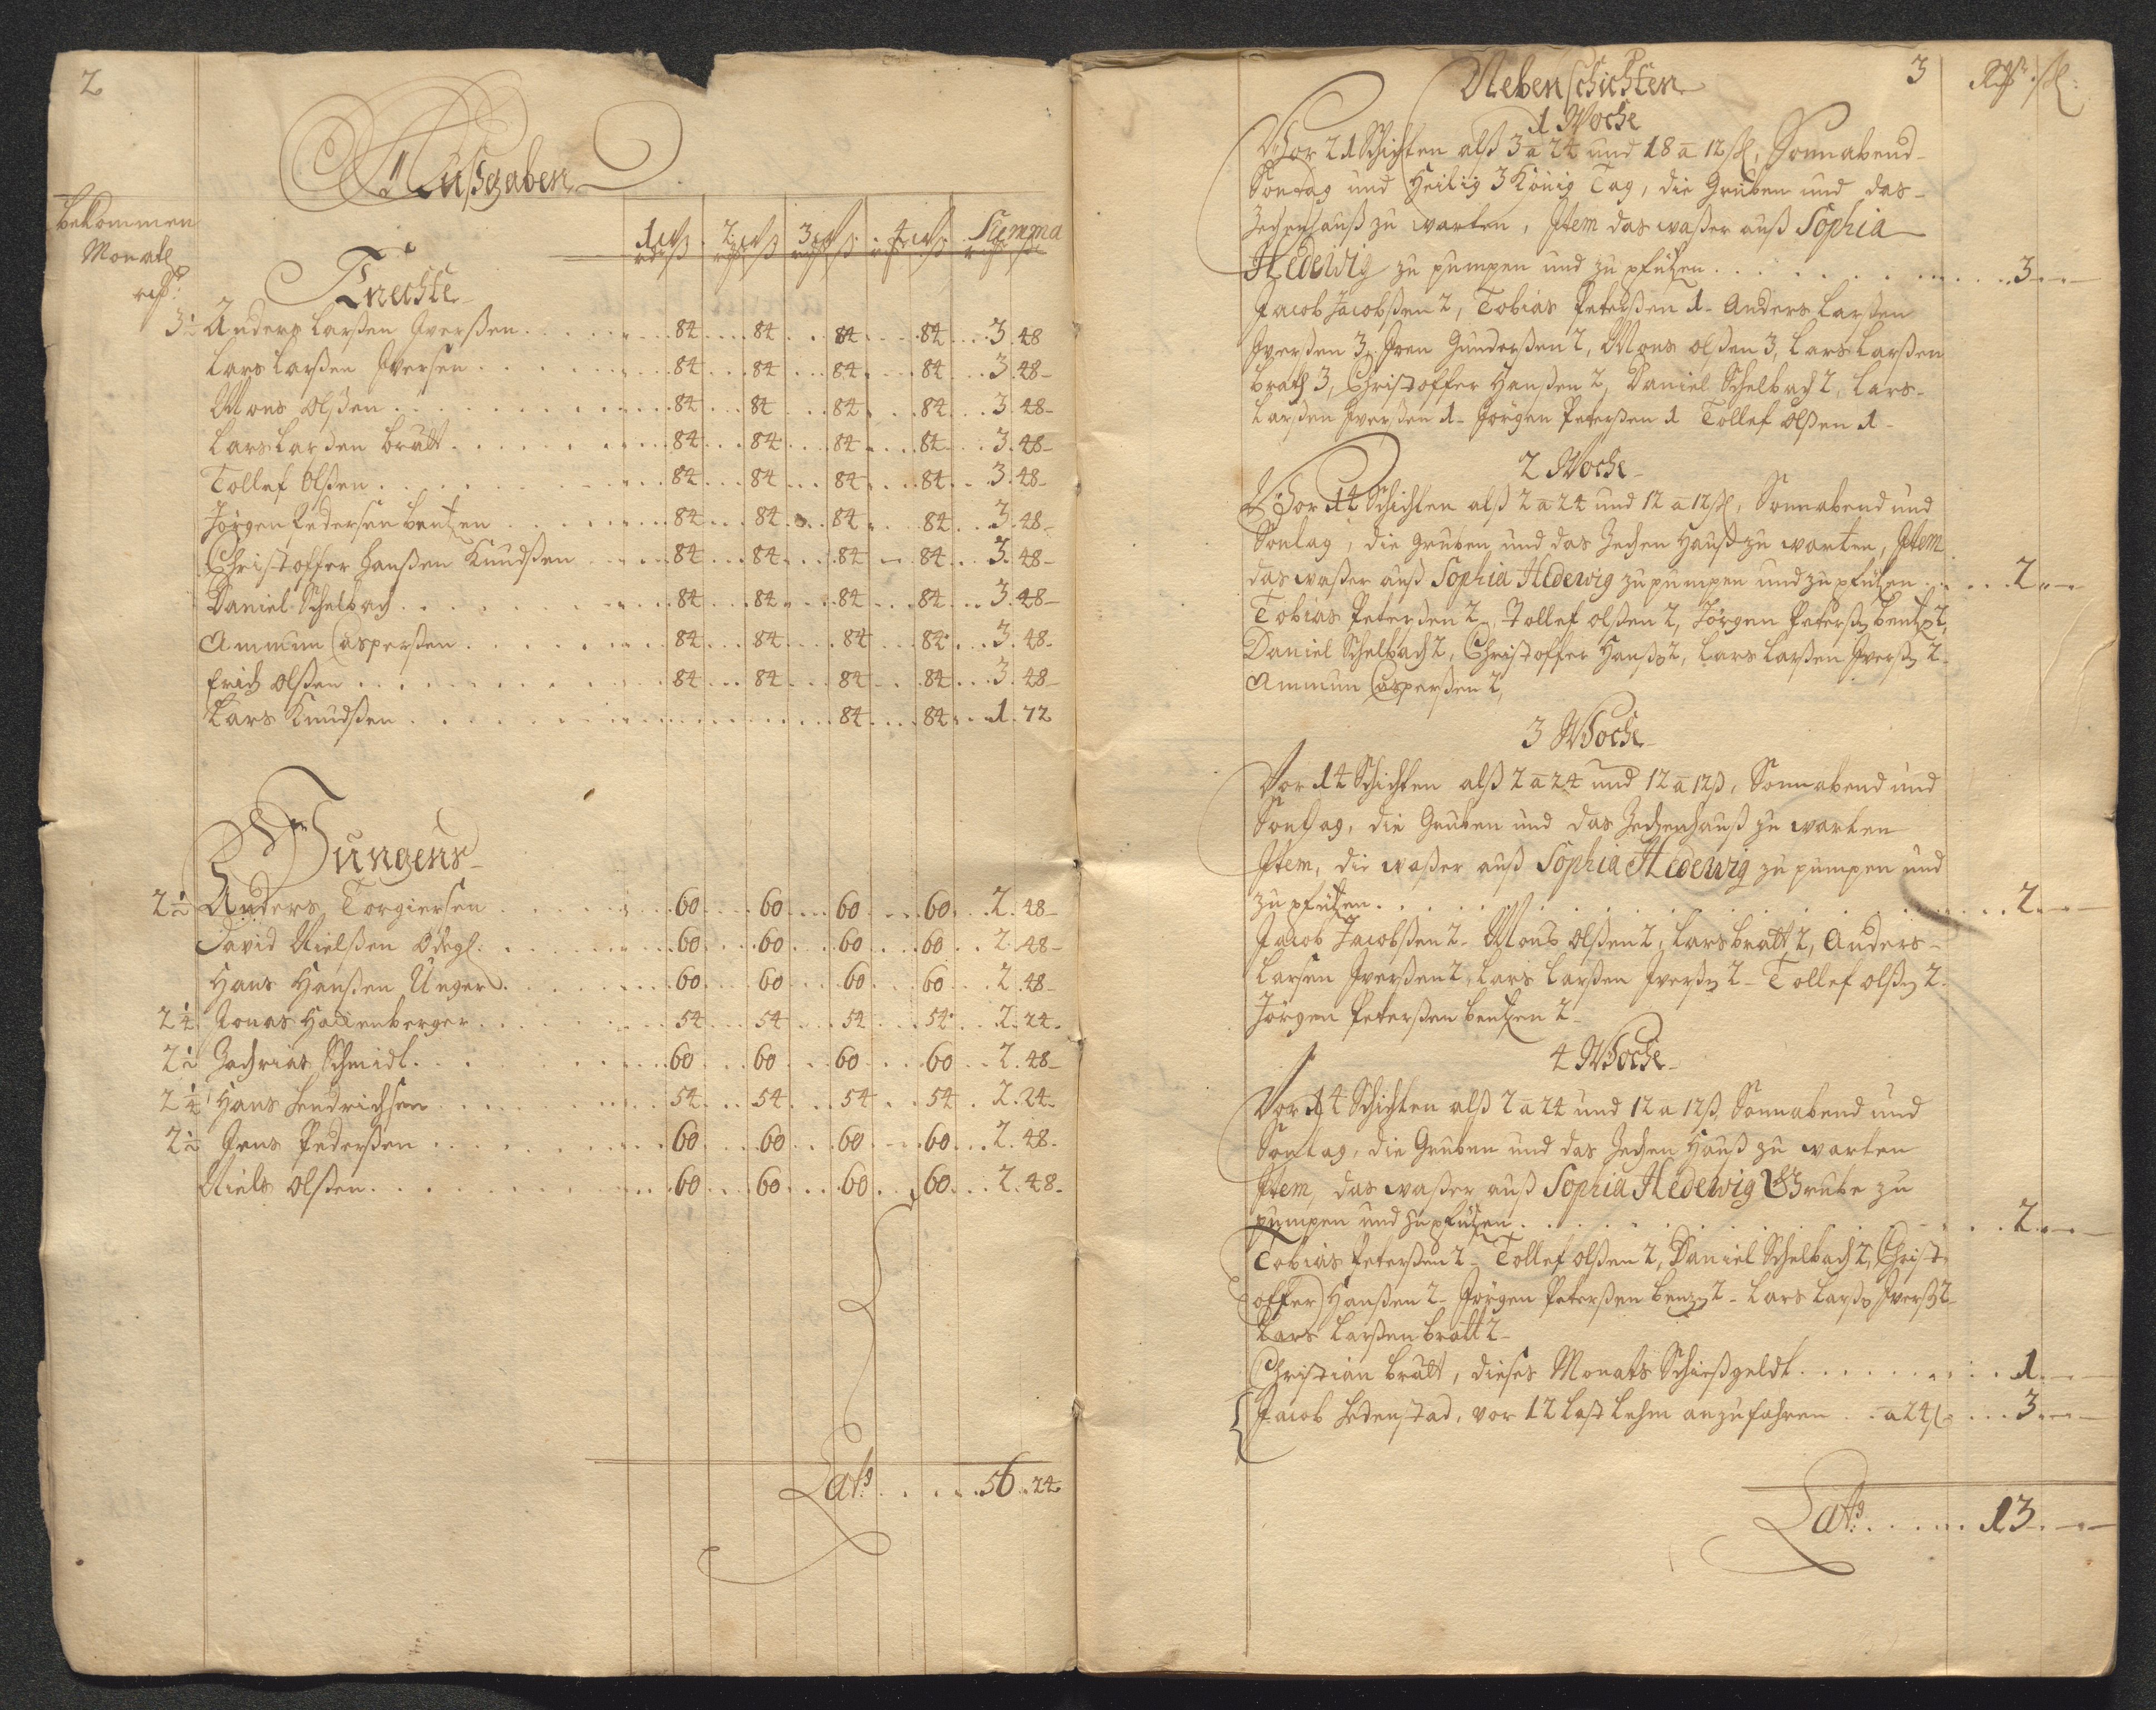 2
Außgaben
bekommen
Monatl
rdß:
1 W 2 W 3 W 4 W Summa
Knechte
3½ Anders Larßen Iverßen . . . 84 . . . 84 . . . 84 . . . 84 . . . 3. 48
Lars Larßen Iversen . . . 84 . . . 84 . . . 84 . . . 84 . . . 3. 48-
Mons Olßen . . . 84 . . . 84 . . . 84 . . . 84 . . . 3. 48-
Lars Larßen Bratt . . . 84 . . . 84 . . . 84 . . . 84 . . . 3. 48-
Tollef Olßen . . . 84 . . . 84 . . . 84 . . . 84 . . . 3. 48-
Jörgen Pedersen Bentzen . . . 84 . . . 84 . . . 84 . . . 84 . . . 3. 48-
Christoffer Hanßen Knudßen . . . 84 . . . 84 . . . 84 . . . 84 . . . 3. 48-
Daniel Schelbach . . . 84 . . . 84 . . . 84 . . . 84 . . . 3. 48-
Ammun Casperßen . . . 84 . . . 84 . . . 84 . . . 84 . . . 3. 48-
Erich Olßen . . . 84 . . . 84 . . . 84 . . . 84 . . . 3. 48-
Lars Knudßen . . . 84 . . . 84 . . . 1. 72
Jungens
2½ Anders Torgiersen . . . 60 . . . 60 . . . 60 . . . 60 . . . 2. 48-
David Nielßen . . . 60 . . . 60 . . . 60 . . . 60 . . . 2. 48-
Hans Hanßen Unger . . . 60 . . . 60 . . . 60 . . . 60 . . . 2. 48-
2¼ Jonas Hattenberger . . . 54 . . . 54 . . . 54 . . . 54 . . . 2. 24-
2½ Zachrias Schmidt . . . 60 . . . 60 . . . 60 . . . 60 . . . 2. 48-
2¼ Hans Hendrichsen . . . 54 . . . 54 . . . 54 . . . 54 . . . 2. 24-
2½ Jens Pederßen . . . 60 . . . 60 . . . 60 . . . 60 . . . 2. 48-
Niels Olßen . . . 60 . . . 60 . . . 60 . . . 60 . . . 2. 48-
Lats: . . . 56. 24
3
Nebenschichten
1 Woche
Vor 21 Schichten alß 3 a 24 und 18 a 12ß, Sonnabend-
Sontag und Heilig 3 König Tag, die Gruben und das-
Zechenhauß zu warten, Item das waßer auß Sophia
Hedewig zu pumpen und zu pfützen . . . 3.-
Jacob Jacobßen 2, Tobias Peterßen 1- Anders Larßen
Iverßen 3, Iven Gunderßen 2, Mons Olßen 3, Lars Larßen
Brath 3, Christoffer Hanßen 2, Daniel Schelbach 2, Lars-
Larßen Iverßen 1- Jörgen Peterßen 1 Tollef Olßen 1-
2 Woche
Vor 14 Schichten alß 2 a 24 und 12 a 12ß, Sonnabend und
Sontag, die Gruben und das Zechen Hauß zu warten, Item
das waßer auß Sophia Hedewig zu pumpen und zu pfützen . . . 2.-
Tobias Peterßen 2, Tollef Olßen 2, Jörgen Peterßn Bentzn 2,
Daniel Schelbach 2, Christoffer Hanßn 2, Lars Larßen Iverßn 2-
Ammun Casperßen 2,
3 Woche
Vor 14 Schichten alß 2 a 24 und 12 a 12ß, Sonnabend und
Sontag, die Gruben und das Zechenhauß zu warten
Item, die waßer auß Sophia Hedewig zu pumpen und
zu pfützen . . . 2.-
Jacob Jacobßen 2- Mons Olßen 2, Lars Bratt 2, Anders-
Larsen Iverßen 2, Lars Larßen Iverßn 2- Tollef Olßn 2.
Jörgen Peterßen Bentzen 2-
4 Woche
Vor 14 Schichten alß 2 a 24 und 12 a 12ß, Sonnabend und
Sontag, die Gruben und das Zechen Hauß zu warten
Item, das waßer auß Sophia Hedewig Grube zu
pumpen und zu pfützen . . . 2.-
Tobias Peterßen 2- Tollef Olßen 2, Daniel Schelbach 2, Christ-
offer Hanßen 2- Jörgen Peterßen Benzn 2- Lars Larßn Iverßn 2-
Lars Larßen Bratt 2-
Christian Bratt, dieses Monats Schießgeldt . . . 1.-
Jacob Hedenstad, vor 12 Last Lehm anzufahren . . a 24ß . . . 3.-
Lats: . . . 13.-